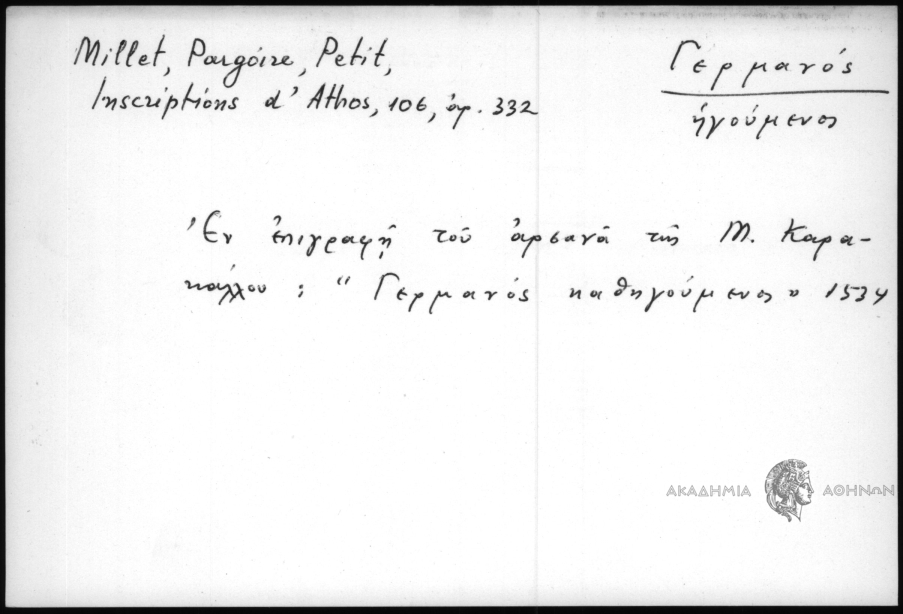 Millet, Pargoire, Petit,
Inscriptions d'Athos, 106, ἀρ. 332
Γερμανός
ἡγούμενος
Ἐν ἐπιγραφῇ τοῦ ἀρσανᾶ τῆς Μ. Καρα-
κάλλου : " Γερμανός καθηγούμενος " 1534
ΑΚΑΔΗΜΙΑ ΑΘΗΝΩΝ